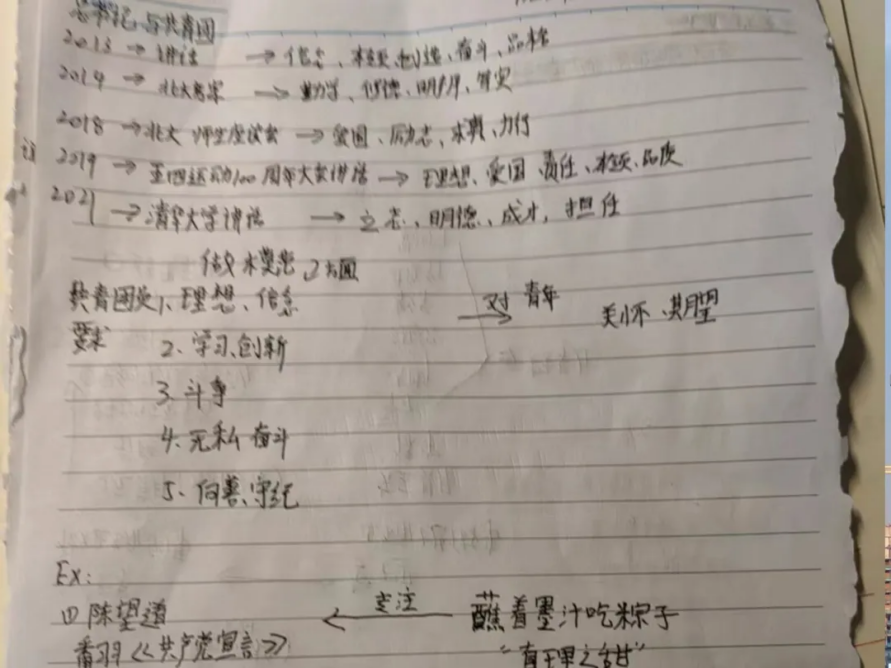 总书记与共青团
2013 → 讲话 → 信念、本领、创造、奋斗、品格
2014 → 北大 → 勤学、修德、明辨、笃实
2018 → 北大 师生座谈会 → 爱国、励志、求真、力行
2019 → 五四运动100周年大会讲话 → 理想、爱国、责任、本领、品质
2021 → 清华大学讲话 → 立志、明德、成才, 担任
做 模范 方面
共青团员 1、理想、信念 → 对 青年 关怀、期望
要求 2、学习、创新
3、斗争
4、无私 奋斗
5、向善、守纪
Ex:
① 陈望道 ← 专注 蘸着墨汁吃粽子
翻译《共产党宣言》 “真理之甜”